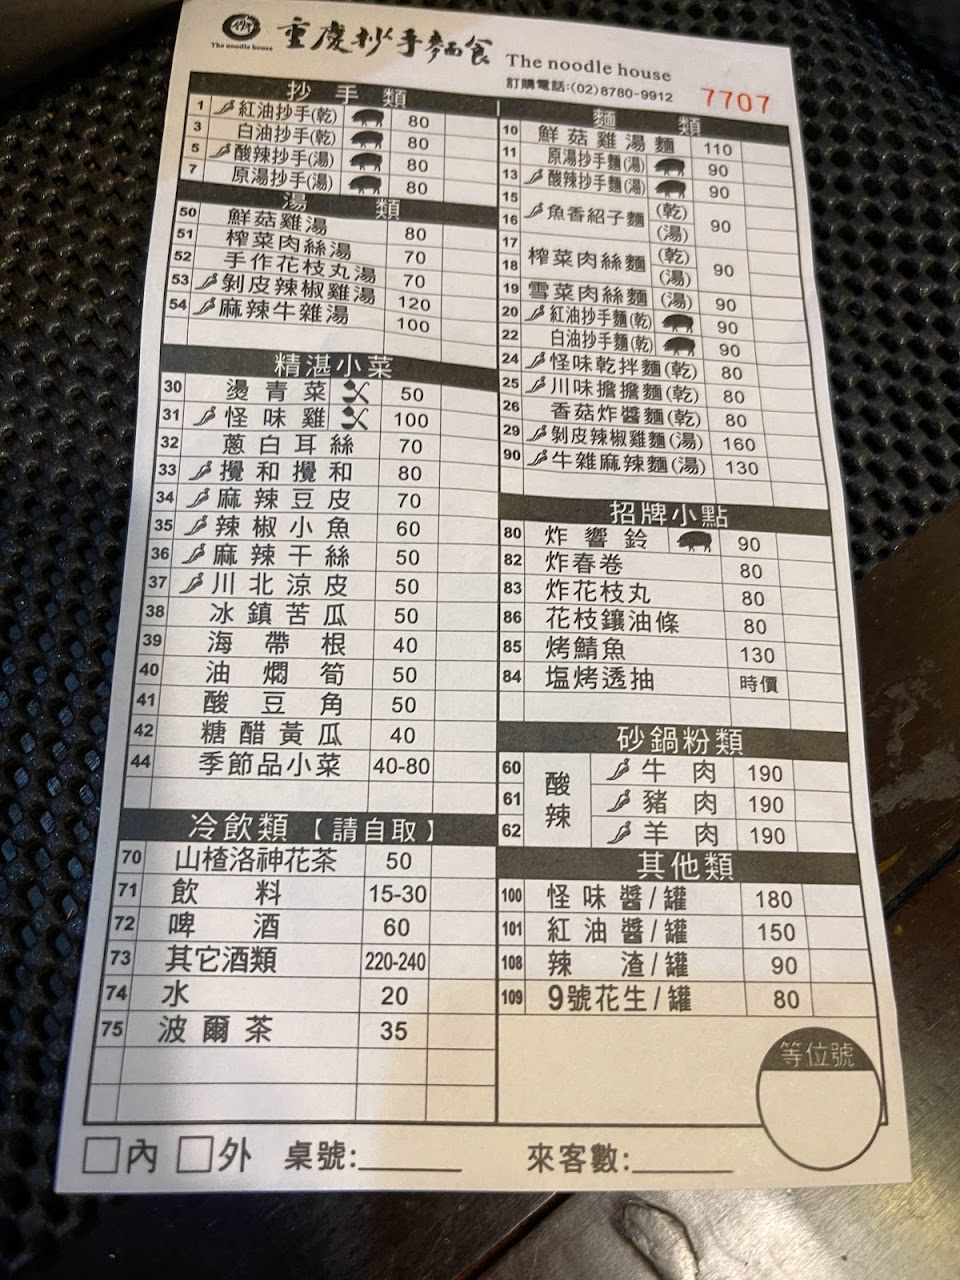 The noodle house
重慶抄手麵食 The noodle house
訂購電話:(02)8780-9912
7707
抄手類
1 紅油抄手(乾) 80
3 白油抄手(乾) 80
5 酸辣抄手(湯) 80
7 原湯抄手(湯) 80
湯類
50 鮮菇雞湯 80
51 榨菜肉絲湯 70
52 手作花枝丸湯 70
53 剝皮辣椒雞湯 120
54 麻辣牛雜湯 100
精湛小菜
30 燙青菜 50
31 怪味雞 100
32 蔥白耳絲 70
33 攪和攪和 80
34 麻辣豆皮 70
35 辣椒小魚 60
36 麻辣干絲 50
37 川北涼皮 50
38 冰鎮苦瓜 50
39 海帶根 40
40 油燜筍 50
41 酸豆角 50
42 糖醋黃瓜 40
44 季節品小菜 40-80
冷飲類【請自取】
70 山楂洛神花茶 50
71 飲料 15-30
72 啤酒 60
73 其它酒類 220-240
74 水 20
75 波爾茶 35
麵類
10 鮮菇雞湯麵 110
11 原湯抄手麵(湯) 90
13 酸辣抄手麵(湯) 90
15 魚香紹子麵 (乾) 90
16 (湯)
17 榨菜肉絲麵 (乾) 90
18 (湯)
19 雪菜肉絲麵(湯) 90
20 紅油抄手麵(乾) 90
22 白油抄手麵(乾) 90
24 怪味乾拌麵(乾) 80
25 川味擔擔麵(乾) 80
26 香菇炸醬麵(乾) 80
29 剝皮辣椒雞麵(湯) 160
90 牛雜麻辣麵(湯) 130
招牌小點
80 炸響鈴 90
82 炸春卷 80
83 炸花枝丸 80
86 花枝鑲油條 80
85 烤鯖魚 130
84 塩烤透抽 時價
砂鍋粉類
酸辣
60 牛肉 190
61 豬肉 190
62 羊肉 190
其他類
100 怪味醬/罐 180
101 紅油醬/罐 150
108 辣渣/罐 90
109 9號花生/罐 80
等位號
□內 □外 桌號:______ 來客數:______